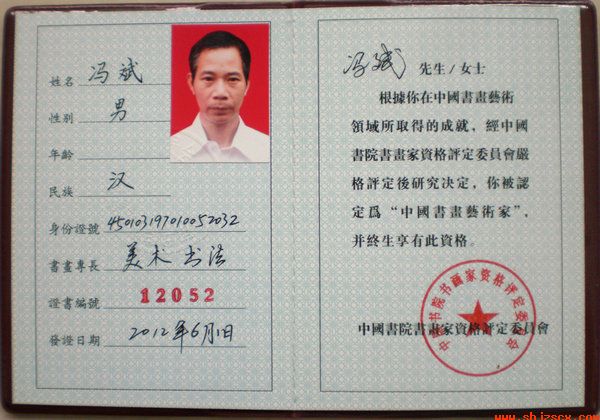 姓名 冯斌
性别 男
年齡
民族 汉
身份證號 450103197010052032
書畫專長 美术 书法
證書編號 12052
發證日期 2012年6月1日
冯斌 先生/女士
根據你在中國書畫藝術
領域所取得的成就，經中國
書院書畫家資格評定委員會嚴
格評定後研究決定，你被認
定爲“中國書畫藝術家”，
并終生享有此資格。
中国书院书画家资格评定委员会
中國書院書畫家資格評定委員會